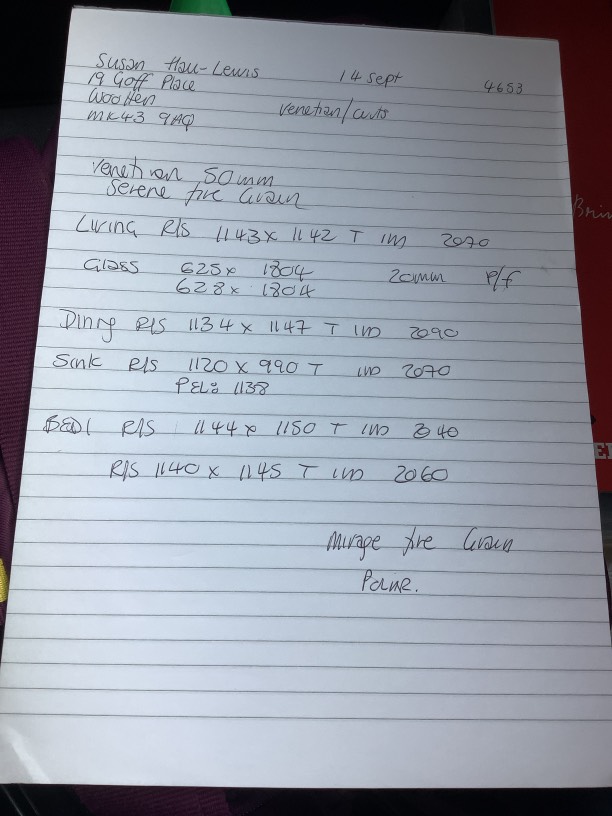 Susan Hau-Lewis 14 Sept 4653
19 Goff Place
Wootten Venetian/cuts
MK43 9AQ
Venetian 50mm
Serene fire Grain
Living R/S 1143 x 1142 T IW 2070
Glass 625 x 1804 20mm P/f
628 x 1804
Dining R/S 1134 x 1147 T IW 2090
Sink R/S 1120 x 990 T IW 2070
PEL: 1138
BED1 R/S 1144 x 1150 T IW 2040
R/S 1140 x 1145 T IW 2060
Mirage fire Grain
Brin